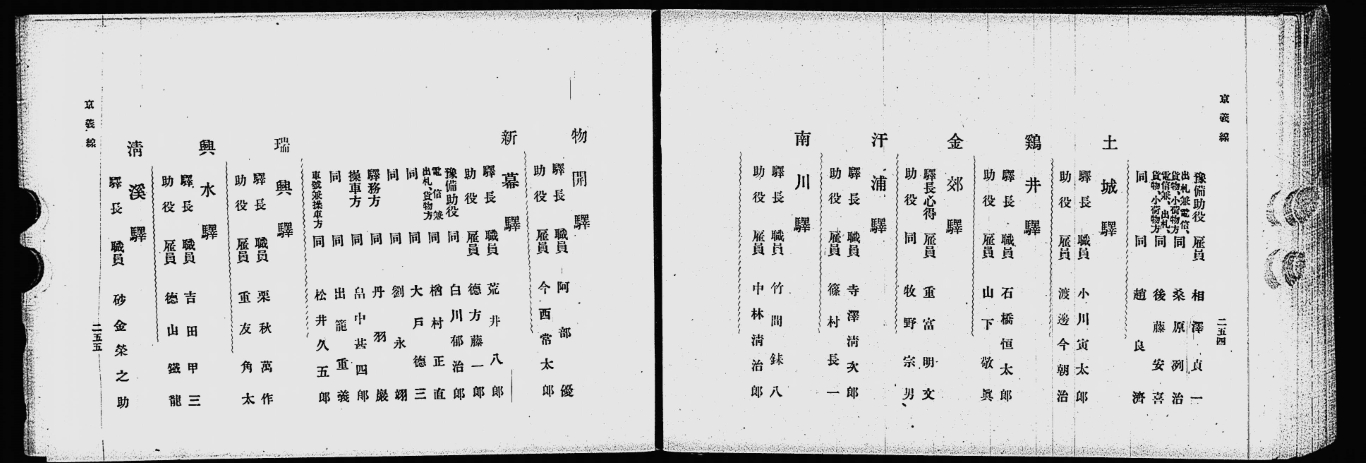 京義線
二五四
豫備助役 雇員 相澤貞一
出札兼電信、貨物、小荷物方 同 桑原冽治
電信兼出札、貨物、小荷物方 同 後藤安喜
同 同 趙良濟
土城驛
驛長 職員 小川寅太郎
助役 雇員 渡邊今朝治
鷄井驛
驛長 職員 石橋恒太郎
助役 雇員 山下敬眞
金郊驛
驛長心得 雇員 重富明文
助役 同 牧野宗男
汗浦驛
驛長 職員 寺澤淸次郎
助役 雇員 篠村長一
南川驛
驛長 職員 竹間銇八
助役 雇員 中林淸治郎
物開驛
驛長 職員 阿部優
助役 雇員 今西常太郎
新幕驛
驛長 職員 荒井八郎
助役 雇員 德方藤一郎
豫備助役 同 白川郁治郎
電信兼出札、貨物方 同 楢村正直
同 同 大戶德三
同 同 劉永翊
驛務方 同 丹羽巖
操車方 同 畠中甚四郎
同 同 出籠重義
車號兼操車方 同 松井久五郎
瑞興驛
驛長 職員 栗秋萬作
助役 雇員 重友角太
興水驛
驛長 職員 吉田甲三
助役 雇員 德山鐵龍
淸溪驛
驛長 職員 砂金榮之助
京義線
二五五